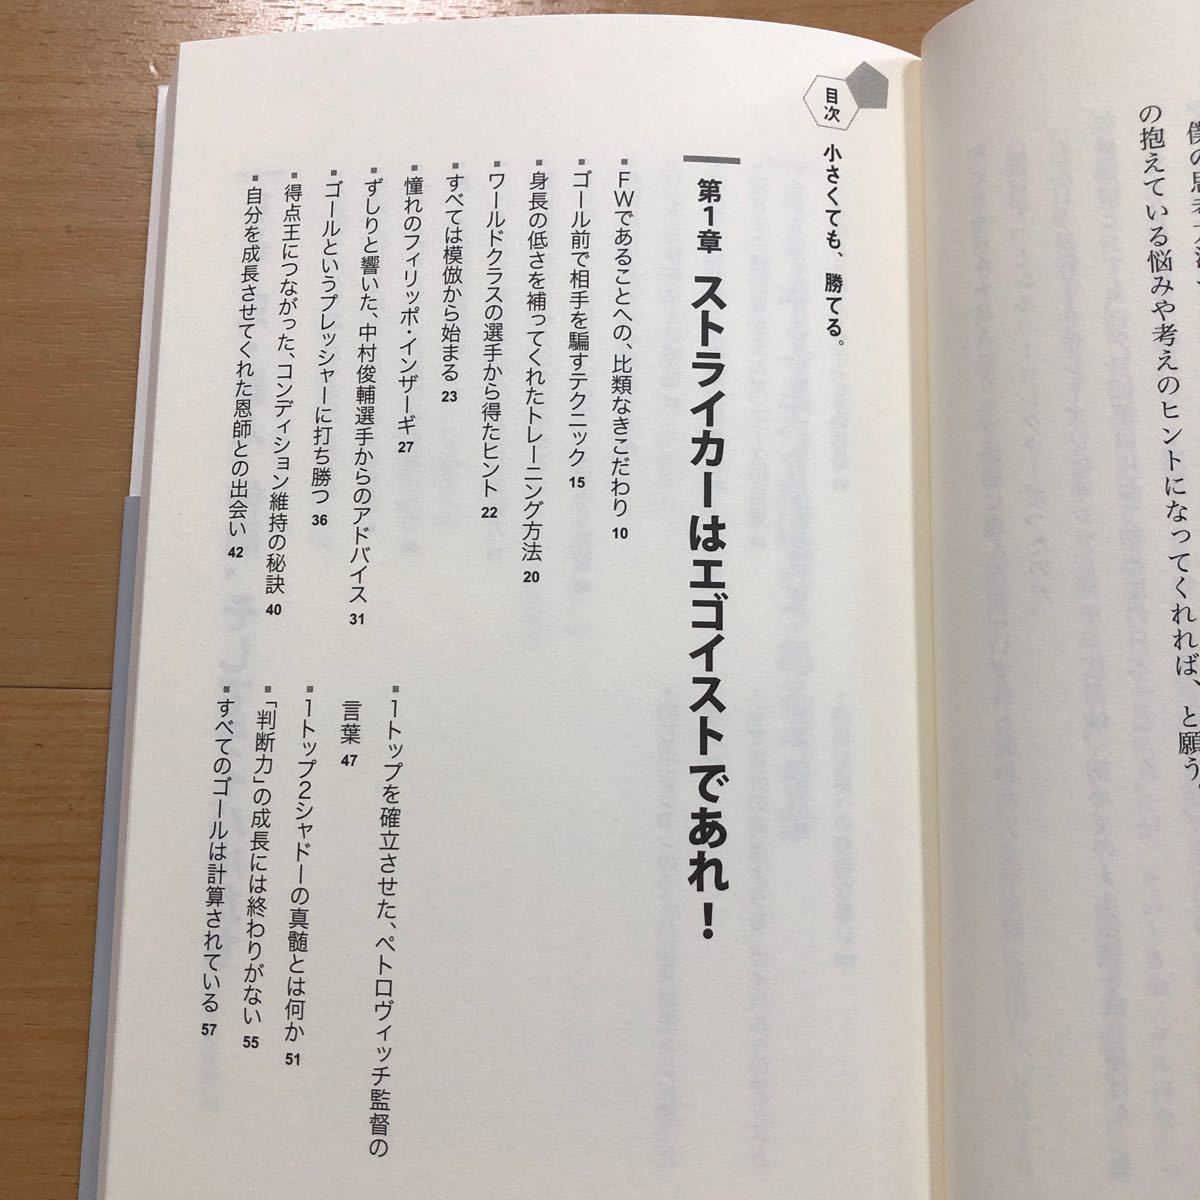 の抱えている悩みや考えのヒントになってくれれば、と願う。
目次
小さくても、勝てる。
第1章 ストライカーはエゴイストであれ！
FWであることへの、比類なきこだわり 10
ゴール前で相手を騙すテクニック 15
身長の低さを補ってくれたトレーニング方法 20
ワールドクラスの選手から得たヒント 22
すべては模倣から始まる 23
憧れのフィリッポ・インザーギ 27
ずしりと響いた、中村俊輔選手からのアドバイス 31
ゴールというプレッシャーに打ち勝つ 36
得点王につながった、コンディション維持の秘訣 40
自分を成長させてくれた恩師との出会い 42
1トップを確立させた、ペトロヴィッチ監督の
言葉 47
1トップ2シャドーの真髄とは何か 51
「判断力」の成長には終わりがない 55
すべてのゴールは計算されている 57